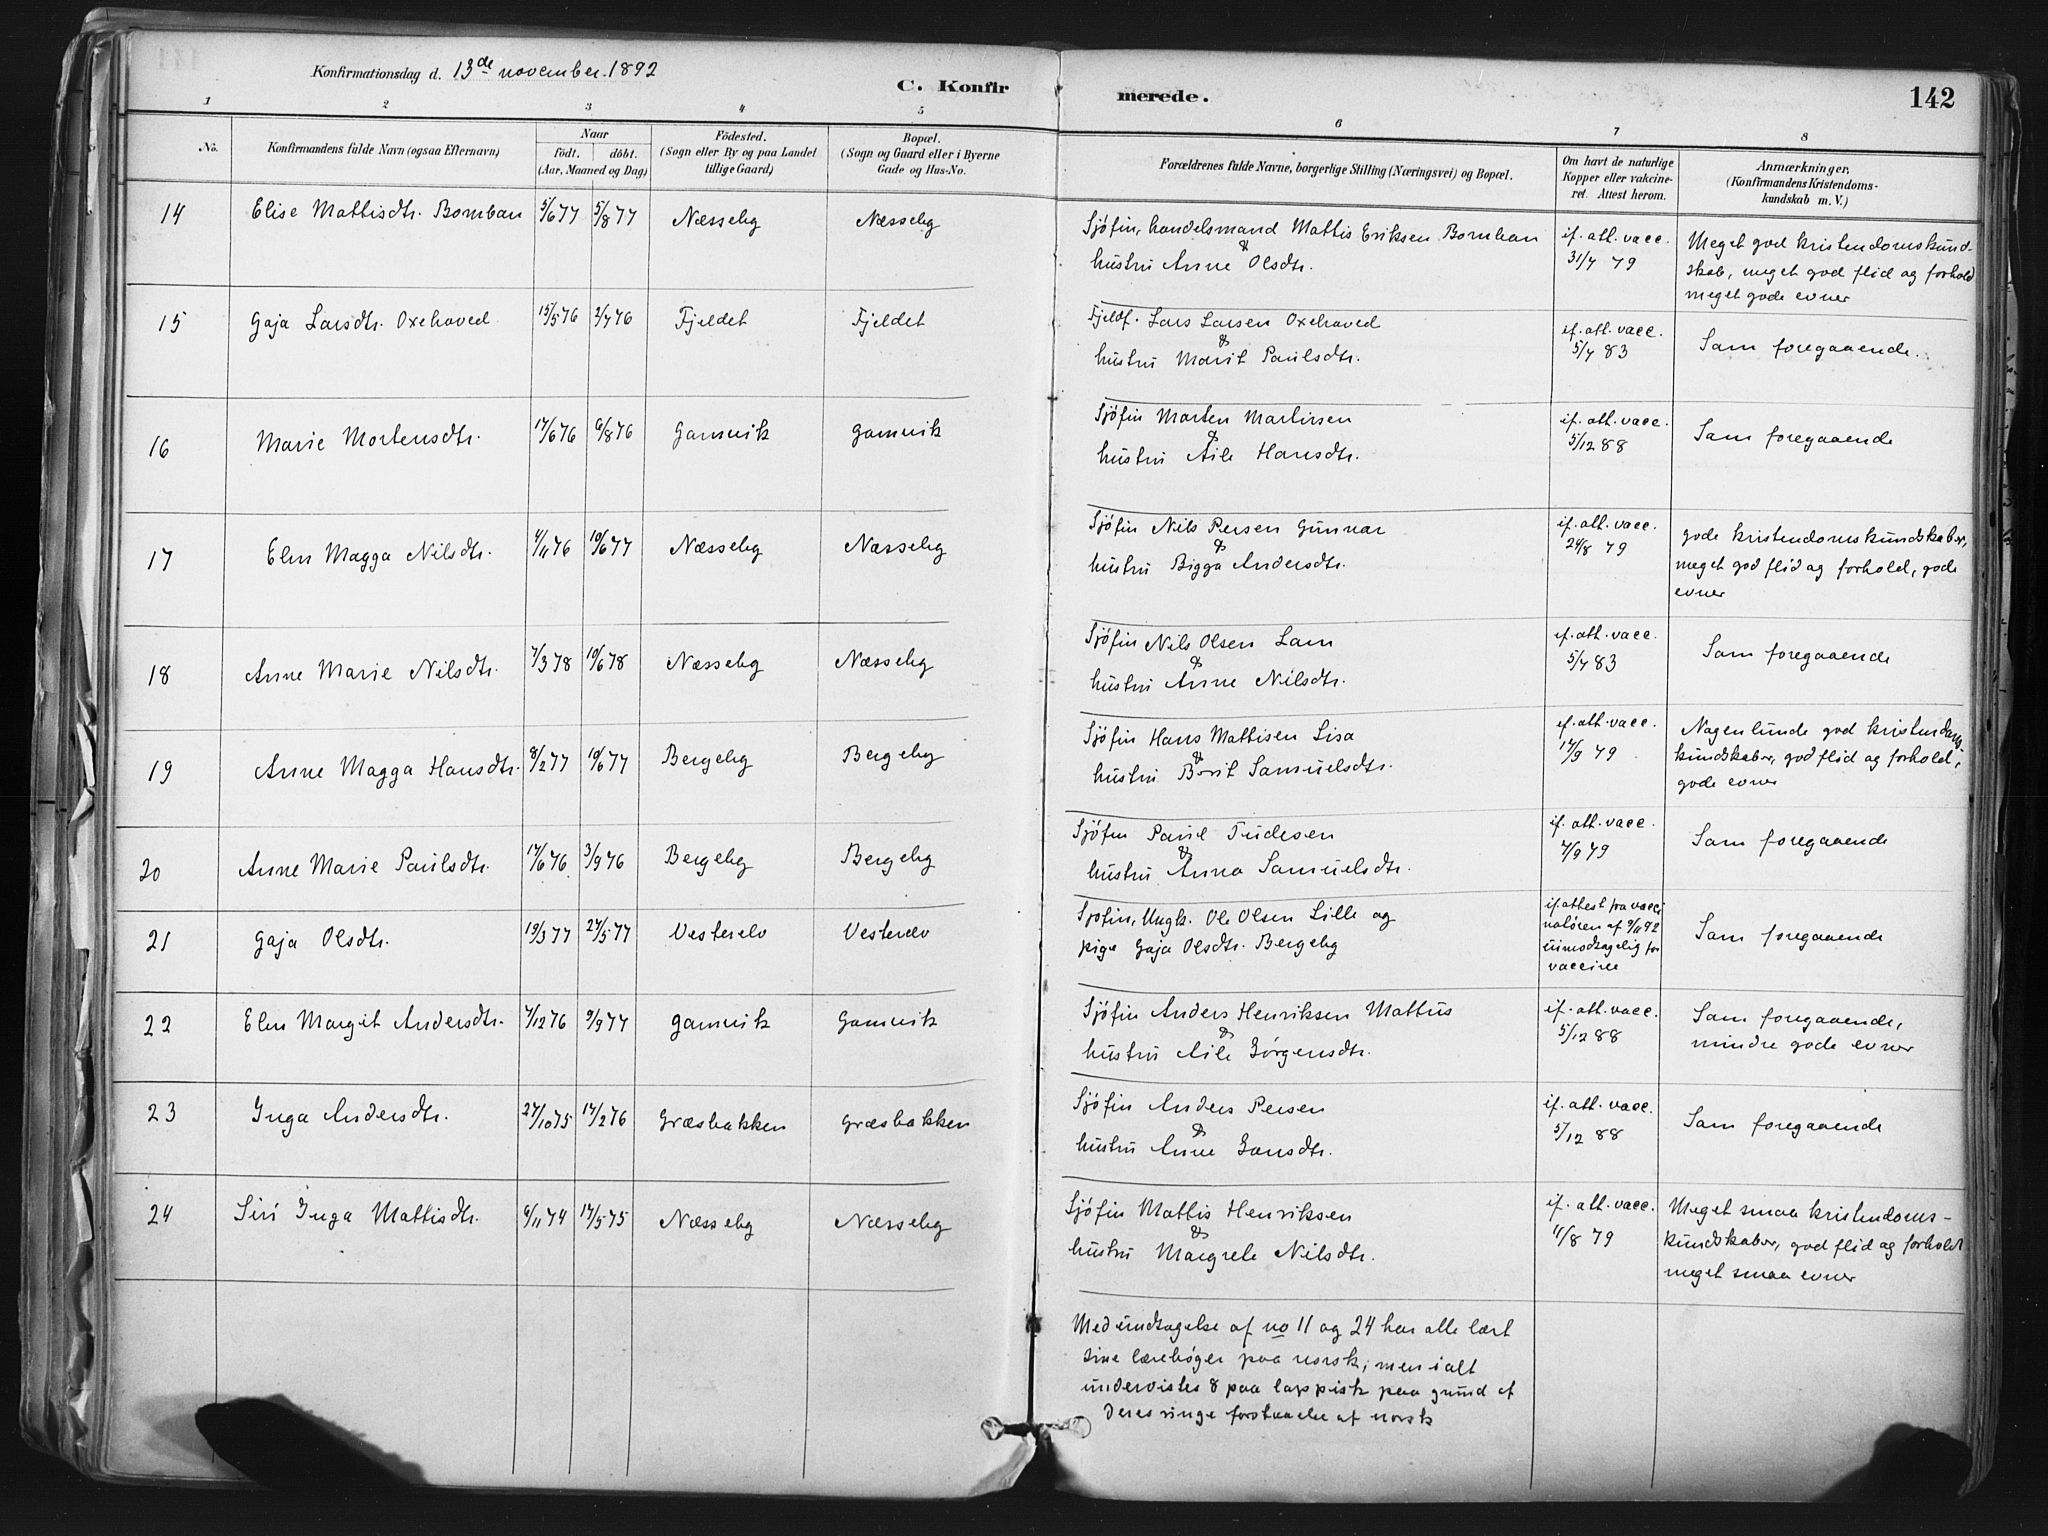 Konfirmationsdag d. 13de november. 1892
C. Konfirmerede.
142
1 2 3 4 5 6 7 8
No.
Konfirmandens fulde Navn (ogsaa Efternavn)
Naar
födt. döbt.
(Aar, Maaned og Dag)
Födested.
(Sogn eller By og paa Landet
tillige Gaard)
Bopæl.
(Sogn og Gaard eller i Byerne
Gade og Hus-No.
Forældrenes fulde Navne, borgerlige Stilling (Næringsvei) og Bopæl.
Om havt de naturlige
Kopper eller vakcine-
ret. Attest herom.
Anmærkninger,
(Konfirmandens Kristendoms-
kundskab m. V.)
14 Elise Mattisdtr. Bomban 5/6 77 5/8 77 Næsseby Næsseby
Sjöfin, handelsmand Mattis Eriksen Bomban
& hustru Anne Olsdtr.
if. att. vacc.
31/7 79
Meget god kristendomskund-
skab, meget god flid og forhold
meget gode evner
15 Gaja Larsdtr. Oxehoved 15/5 76 2/7 76 Fjeldet Fjeldet
Fjeldf. Lars Larsen Oxehoved
& hustru Marit Paulsdtr.
if. att. vacc.
5/7 83
Som foregaaende.
16 Marie Mortensdtr. 17/6 76 6/8 76 Gamvik Gamvik
Sjöfin Morten Martinsen
& hustru Aile Hansdtr.
if. att. vacc.
5/12 88
Som foregaaende
17 Elen Magga Nilsdtr. 4/11 76 10/6 77 Næsseby Næsseby
Sjöfin Nils Persen Gunnar
& hustru Bigga Andersdtr.
if. att. vacc.
24/8 79
gode kristendomskundskaber,
meget god flid og forhold, gode
evner
18 Anne Marie Nilsdtr. 7/3 78 10/6 78 Næsseby Næsseby
Sjöfin Nils Olsen Lam
& hustru Anne Nilsdtr.
if. att. vacc.
5/7 83
Som foregaaende
19 Anne Magga Hansdtr. 8/2 77 10/6 77 Bergeby Bergeby
Sjöfin Hans Mattisen Lisa
& hustru Berit Samuelsdtr.
if. att. vacc.
17/9 79
Nogenlunde god kristendoms-
kundskaber, god flid og forhold,
gode evner
20 Anne Marie Paulsdtr. 17/6 76 3/9 76 Bergeby Bergeby
Sjöfin Paul Tudesen
& hustru Anna Samuelsdtr.
if. att. vacc.
7/9 79
Som foregaaende
21 Gaja Olsdtr. 19/3 77 27/5 77 Vesterelv Vesterelv
Sjöfin, Ungk. Ole Olsen Lille og
pige Gaja Olsdtr. Bergeby
if. attest fra vacci
natören af 9/11 92
uimodtagelig for
vaccine
Som foregaaende
22 Elen Margit Andersdtr. 7/12 76 9/9 77 Gamvik Gamvik
Sjöfin Anders Henriksen Mattus
& hustru Aile Jörgensdtr.
if. att. vacc.
5/12 88
Som foregaaende,
mindre gode evner
23 Inga Andersdtr. 27/10 75 17/2 76 Græsbakken Græsbakken
Sjöfin Anders Persen
& hustru Anne Jonsdtr.
if. att. vacc.
5/12 88
Som foregaaende
24 Siri Inga Mattisdtr. 6/11 74 17/5 75 Næsseby Næsseby
Sjöfin Mattis Henriksen
& hustru Margrete Nilsdtr.
if. att. vacc.
11/8 79
Meget smaa kristendoms-
kundskaber, god flid og forhold
meget smaa evner
Med undtagelse af no 11 og 24 har alle lært
sine lærebøger paa norsk; men ialt
undervistes 8 paa lappisk paa grund af
deres ringe forstaaelse af norsk